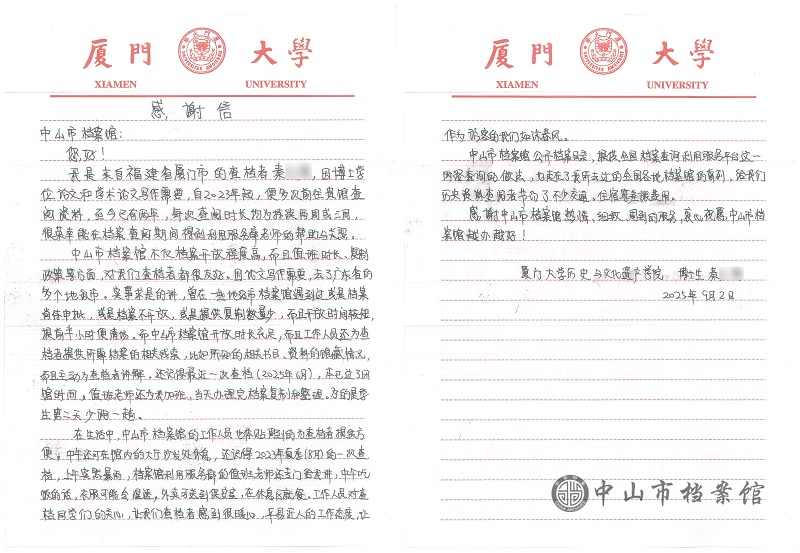 厦門大學
XIAMEN UNIVERSITY
感谢信
中山市档案馆：
您好！
我是来自福建省厦门市的查档者袁
，因博士学
位论文和学术论文写作需要，自2023年起，便多次前往贵馆查
阅资料，至今已有两年，每次查阅时长均为持续两周或三周，
很荣幸能在档案查阅期间得到利用服务部老师的帮助与关照。
中山市档案馆不仅档案开放程度高，而且值班时长、复制
政策等方面，对我们查档者都很友好。因论文写作需要，去了广东省的
多个地级市。实事求是的讲，曾在一些地级市档案馆遇到过或是档案
有待审批，或是档案不开放，或是提供复制数量少，而且开放时间较短，
提前半小时便清场。而中山市档案馆开放时长充足，而且工作人员还为查
档者提供所需档案的相关线索，比如所知的相关书目、资料的馆藏情况，
而且主动为查档者讲解。还记得最近一次查档（2025年6月），本已过了闭
馆时间，值班老师还为我加班，当天办理完档案复制和整理。为的是学
生第二天少跑一趟。
在生活中，中山市档案馆的工作人员也体贴周到的为查档者提供方
便。中午还可在馆内的大厅沙发处休息，还记得2023年夏季（8月）的一次查
档，上午突然暴雨，档案馆利用服务部的值班老师还专门会来讲，中午吃
饭的话，衣服可能会湿透，外卖可送到保安室，在休息间就餐。工作人员对查
档同学们的关心，让我们查档者感到很暖心，平易近人的工作态度，让
厦門大學
XIAMEN UNIVERSITY
作为 的我们如沐春风。
中山市档案馆公开档案目录，提供全国档案查询利用服务平台这一
内容查询的做法，也走在了我所去过的全国各地档案馆的前列，给我们
历史 查阅者节约了不少交通、住宿等差旅费用。
感谢中山市档案馆热情、细致、周到的服务，衷心祝愿，中山市档
案馆越办越好！
厦门大学历史与文化遗产学院 博士生 袁
2025年9月2日
中山市档案馆